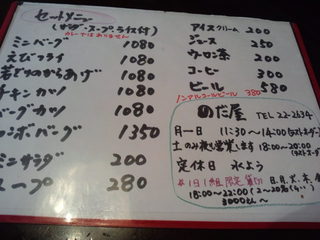 セットメニュー
(サラダ・スープ ライス付)
カレーではありません
ミニバーグ 1080
えびフライ 1080
若どりのからあげ 1080
チキンカツ 1080
バーグカツ 1080
ジャンボバーグ 1350
ミニサラダ 200
スープ 280
アイスクリーム 200
ジュース 250
ウーロン茶 200
コーヒー 300
ビール 580
ノンアルコールビール 380
のだ屋 TEL 22-2634
月〜日 11:30〜14:00(ラストオーダー)
土のみ夜も営業します 18:00〜20:00
(ラストオーダー)
定休日 水よう
※1日1組限定 日.月.火.木.金
18:00〜22:00 (2〜20名くらい)
3000円〜